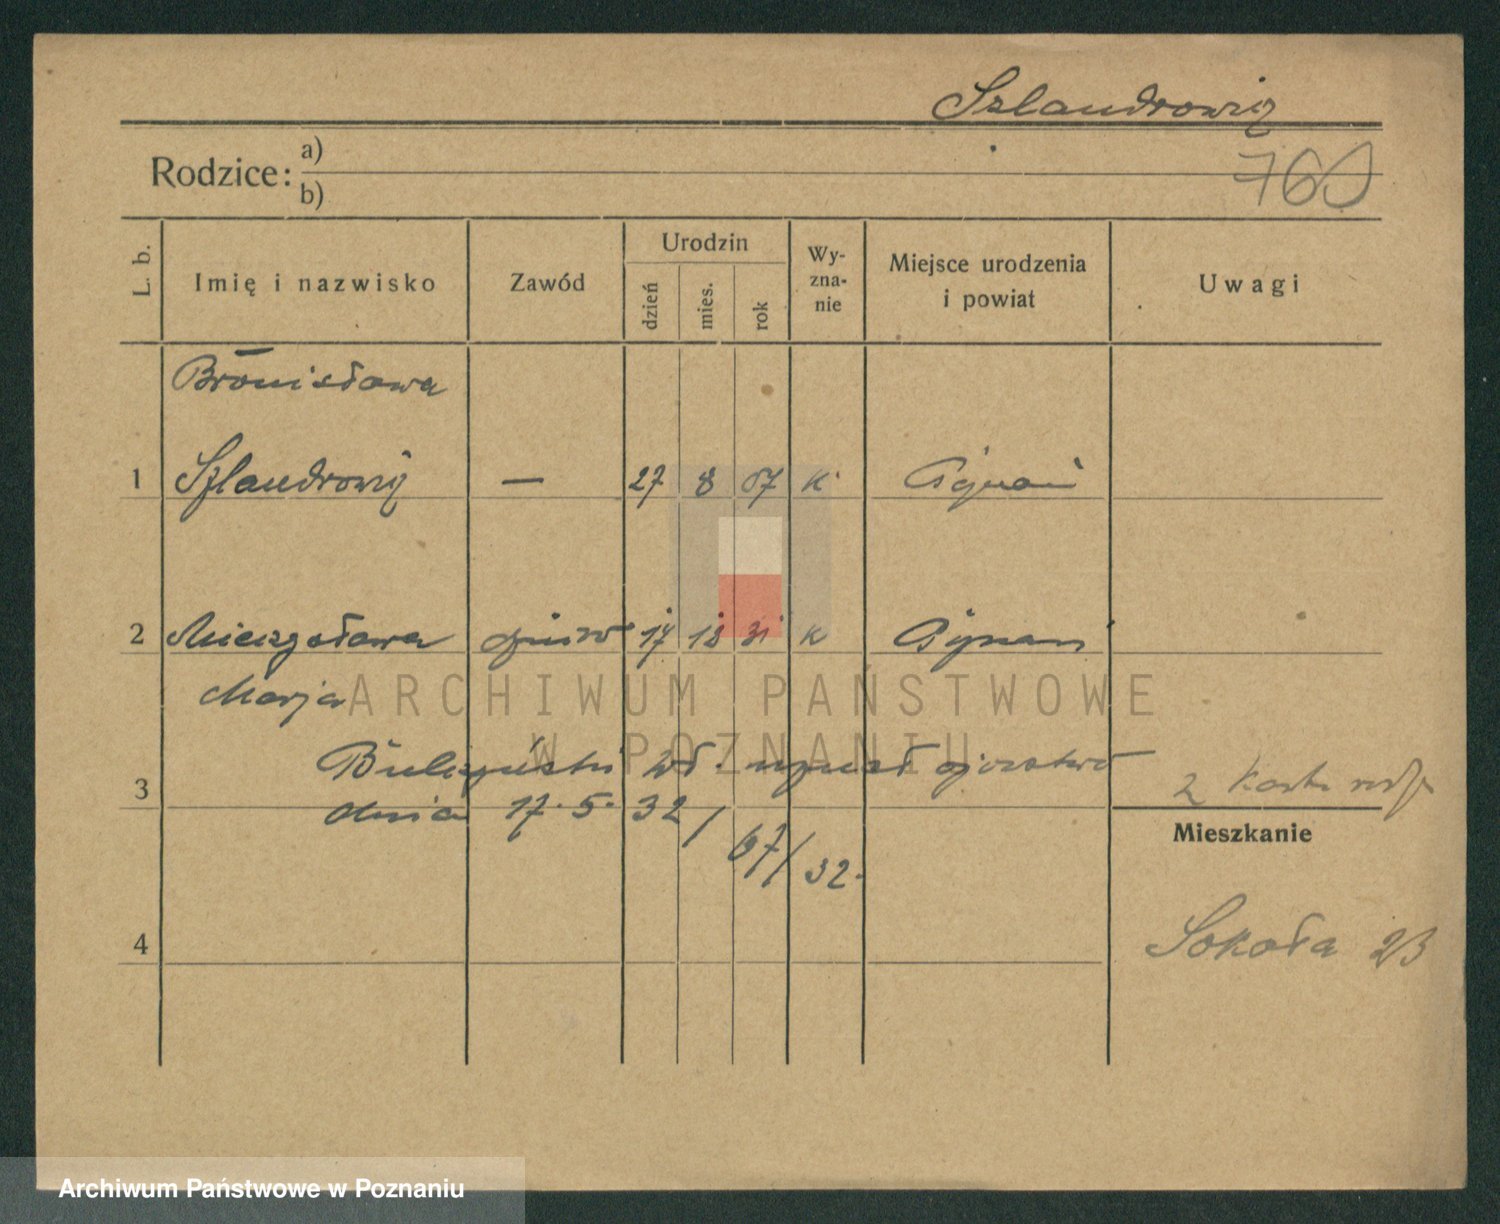 Szlandrowicz
Rodzice: a)
b)
760
L. b.
Imię i nazwisko
Zawód
Urodzin
dzień
mies.
rok
Wy-
zna-
nie
Miejsce urodzenia
i powiat
Uwagi
Bronisława
1 Szlandrowicz — 27 8 07 k Poznań
2 Mieczysława 17 12 31 k Poznań
Marja
ARCHIWUM PAŃSTWOWE
W POZNANIU
uznał ojcostwo
3 dnia 17. 5. 32
67/32.
2
Mieszkanie
Sokoła 23
4
Archiwum Państwowe w Poznaniu